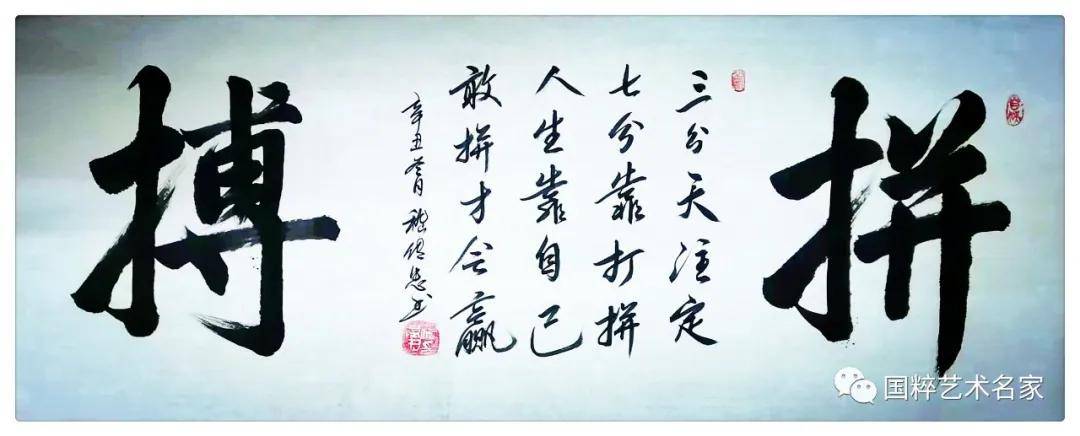 拼
三分天注定
七分靠打拼
人生靠自己
敢拼才会赢
辛丑
搏
国粹艺术名家